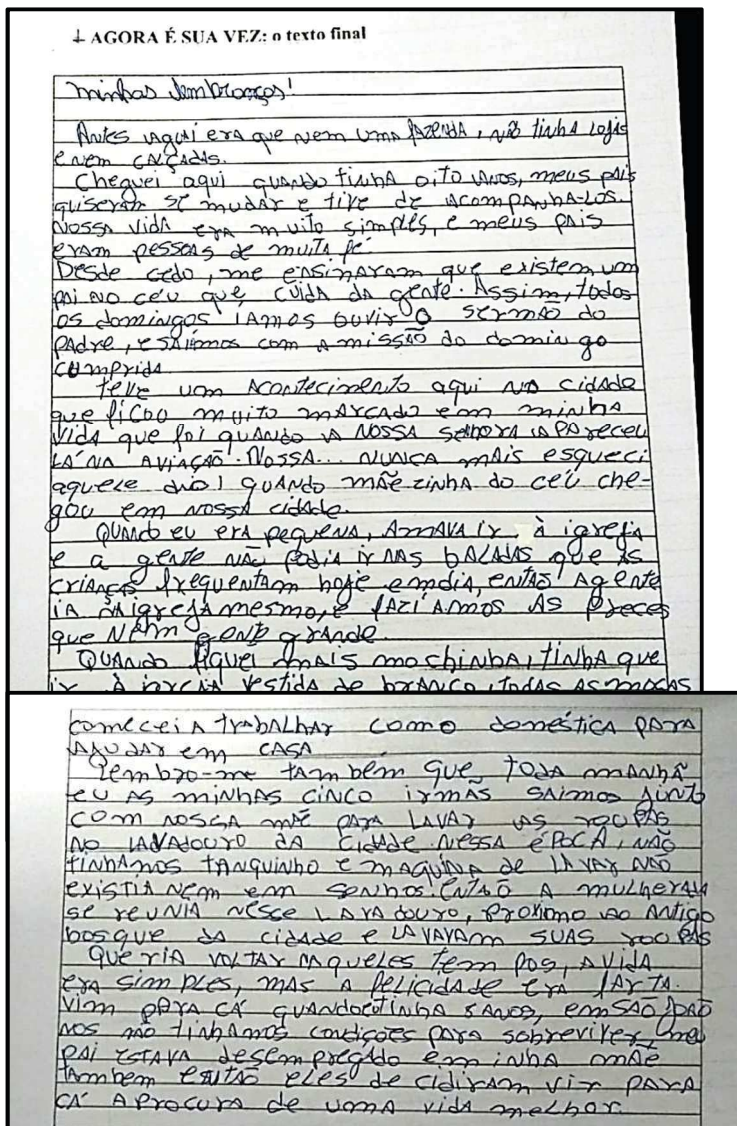 ↓ AGORA É SUA VEZ: o texto final
minhas lembranças!
Antes aqui era que nem uma fazenda, não tinha lojas
e nem calçadas.
Cheguei aqui quando tinha oito anos, meus pais
quiseram se mudar e tive de acompanha-los.
Nossa vida era muito simples, e meus pais
eram pessoas de muita fé.
Desde cedo, me ensinaram que existem um
pai no céu que, cuida da gente. Assim, todos
os domingos iamos ouvir o sermão do
padre, e saíimos com a missão do domingo
cumprida.
teve um acontecimento aqui na cidade
que ficou muito marcado em minha
vida que foi quando a Nossa senhora apareceu
lá na aviação. Nossa... nunca mais esqueci
aquele dia! quando mãezinha do céu che-
gou em nossa cidade.
Quando eu era pequena, Amava ir à igreja
e a gente não podia ir nas baladas que as
crianças frequentam hoje emdia, então agente
ia a igreja mesmo, e faziamos as preces
que nem gente grande.
Quando fiquei mais mochinha, tinha que
ir à igreja vestida de branco, todas as moças
comecei a trabalhar como doméstica para
ajudar em casa
Lembro-me tambem que toda manhã
eu as minhas cinco irmãs saimos junto
com nossa mãe para lavar as roupas
no lavadouro da cidade nessa época, não
tinhamos tanquinho e maquina de lavar não
existia nem em sonhos. então a mulherada
se reunia nesse lavadouro, proximo ao antigo
bosque da cidade e lavavam suas roupas
queria voltar naqueles tempos, a vida
era simples, mas a felicidade era farta.
vim para cá quando tinha 8 anos, em são joão
nos não tinhamos condições para sobreviver, meu
pai estava desempregado e minha mãe
tambem então eles decidiram vir para
cá a procura de uma vida melhor.